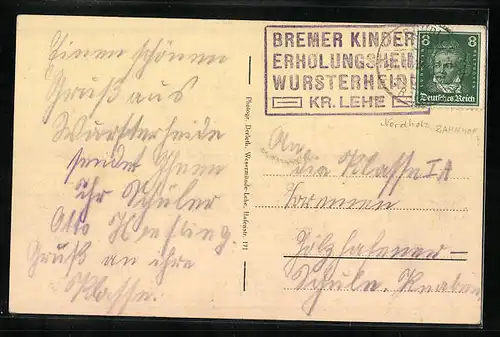 BREMER KINDER
ERHOLUNGSHEIM
WURSTERHEIDE
KR. LEHE
8 8
Deutsches Reich
Nordholz BAHNHOF
Einen schönen
Gruß aus
Wursterheide
sendet Ihnen
ihr Schüler
Otto
Gruß an ihre
Klasse.
Photogr. Wesermünde-Lehe, Hafenstr. 171
An
die Klasse IA
Bremen
Holzhafener-
Schule. Knaben.